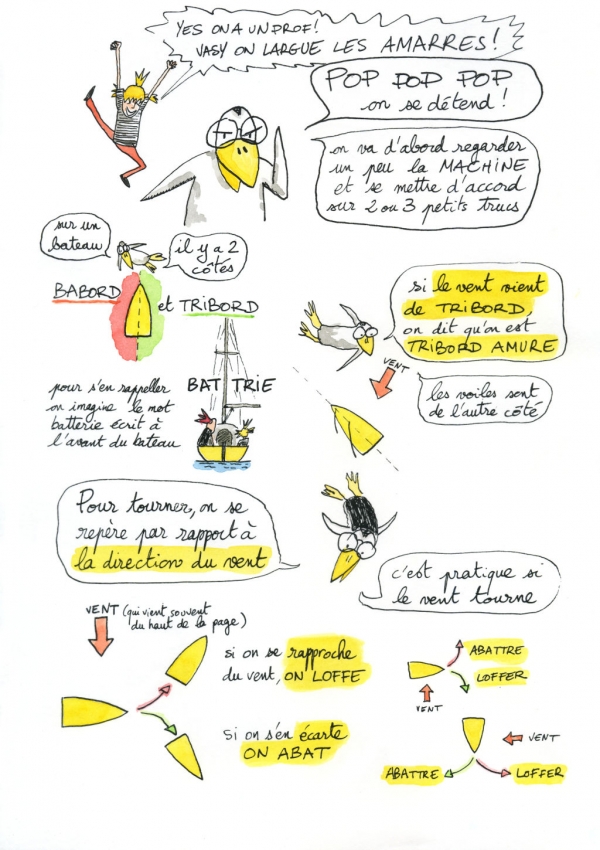 YES ON A UN PROF!
VASY ON LARGUE LES AMARRES!
POP POP POP
on se détend!
on va d'abord regarder
un peu la MACHINE
et se mettre d'accord
sur 2 ou 3 petits trucs
sur un
bateau
il y a 2
côtés
BABORD et TRIBORD
pour s'en rappeller
on imagine le mot
batterie écrit à
l'avant du bateau
BAT TRIE
si le vent vient
de TRIBORD,
on dit qu'on est
TRIBORD AMURE
VENT
les voiles sont
de l'autre côté
Pour tourner, on se
repère par rapport à
la direction du vent
c'est pratique si
le vent tourne
VENT (qui vient souvent
du haut de la page)
si on se rapproche
du vent, ON LOFFE
Si on s'en écarte
ON ABAT
ABATTRE
LOFFER
VENT
VENT
ABATTRE
LOFFER